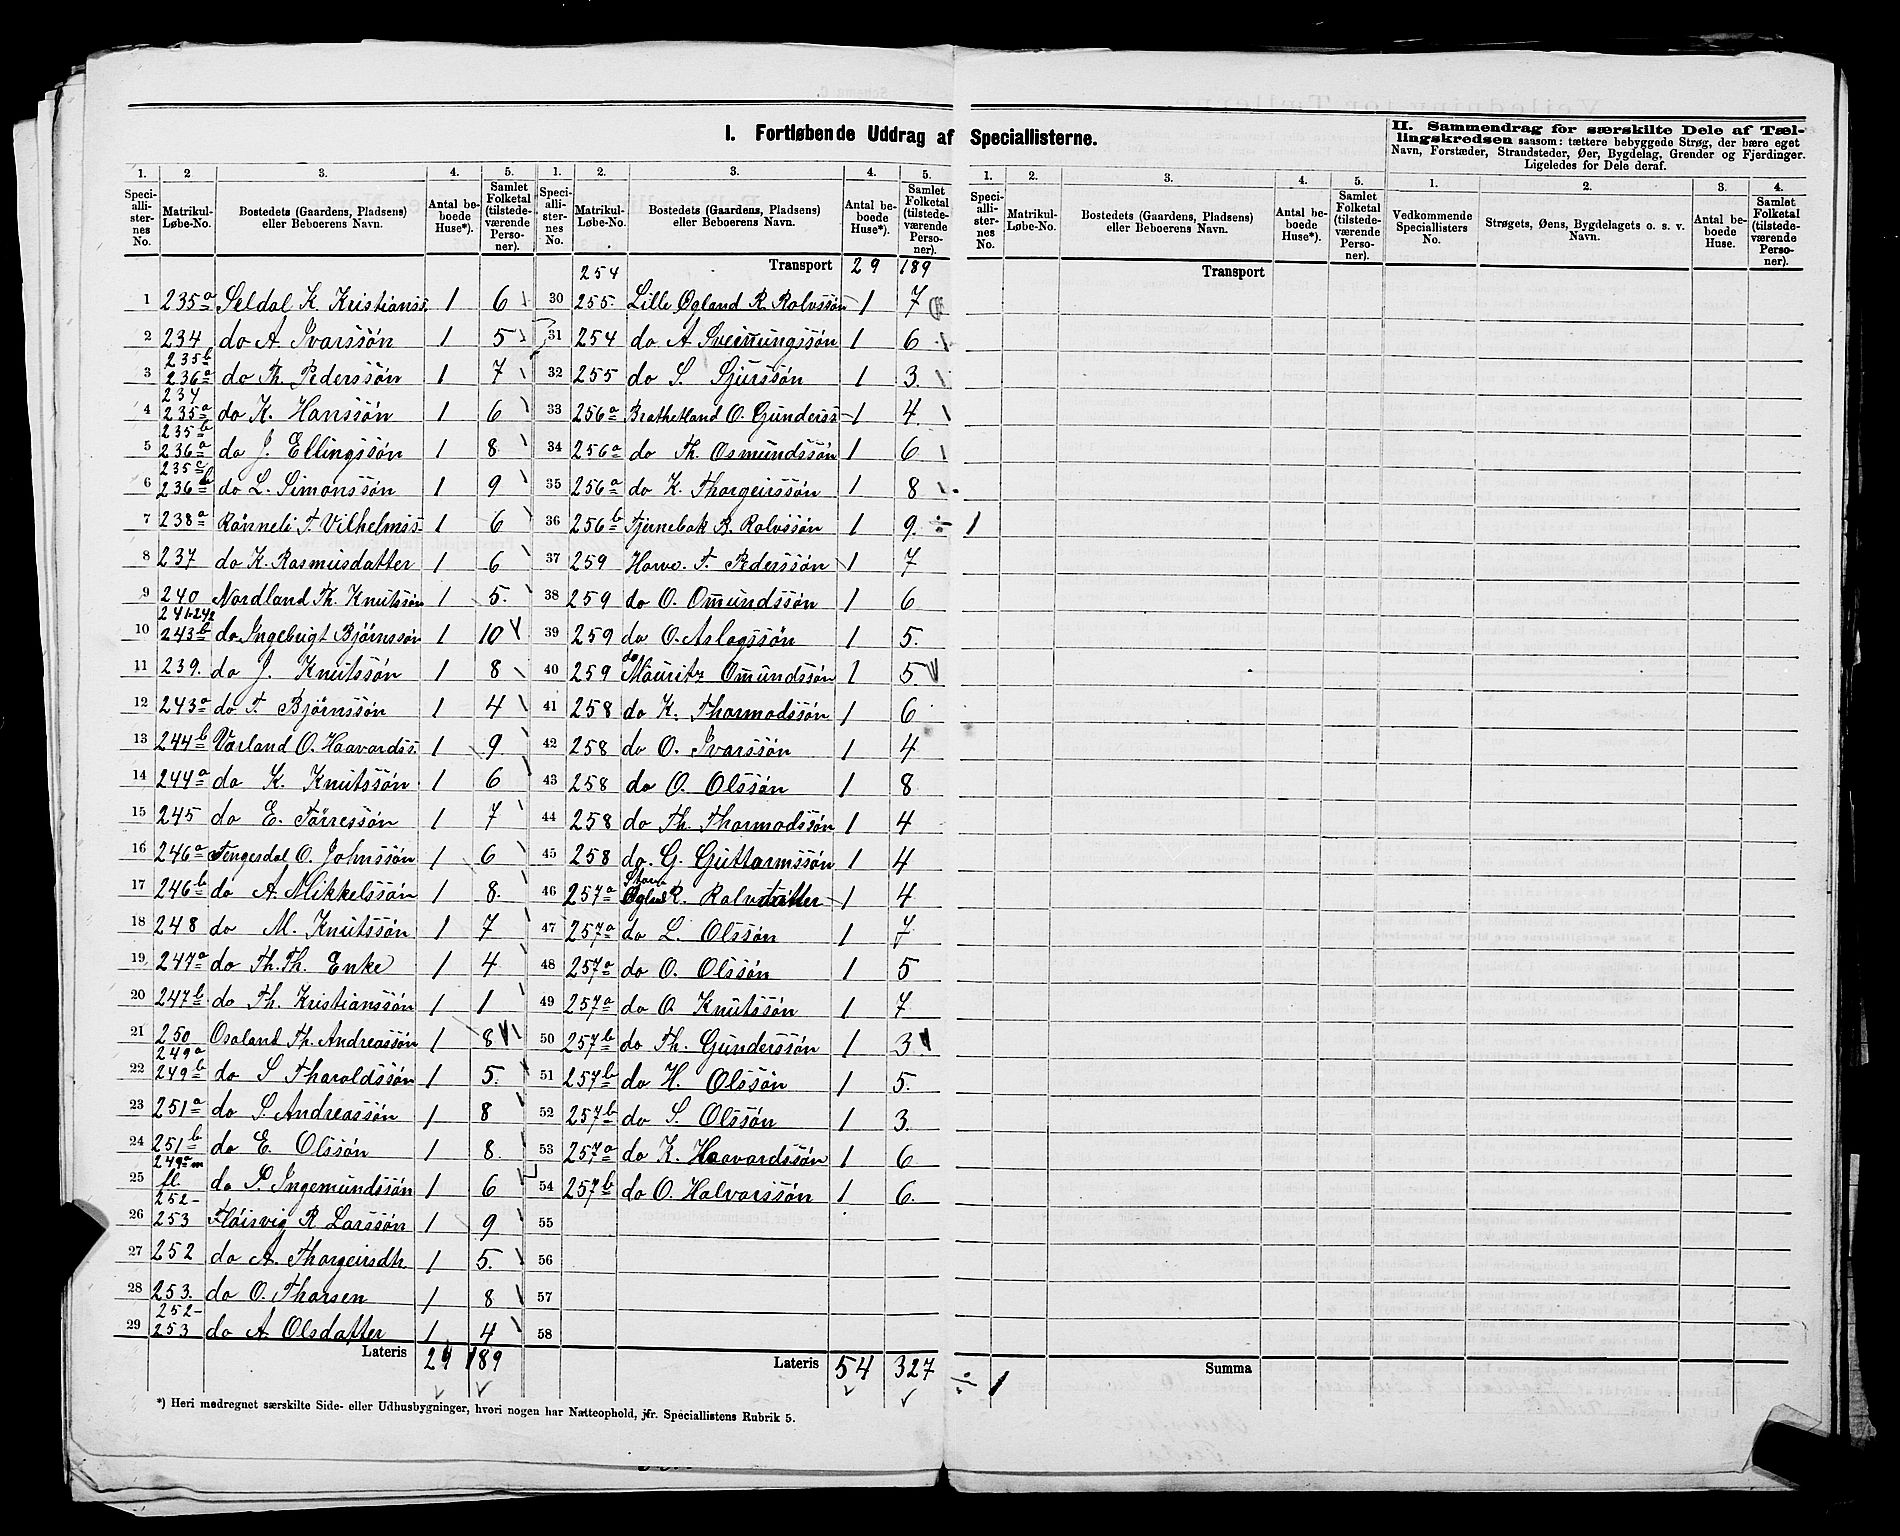 I. Fortløbende Uddrag af Speciallisterne.
II. Sammendrag for særskilte Dele af Tællingskredsen saasom: tættere bebyggede Strøg, der bære eget Navn, Forstæder, Strandsteder, Øer, Bygdelag, Grender og Fjerdinger. Ligeledes for Dele deraf.
1. 2 3. 4. 5.
Speciallisternes No. Matrikul-Løbe-No. Bostedets (Gaardens, Pladsens) eller Beboerens Navn. Antal beboede Huse*). Samlet Folketal (tilstedeværende Personer).
1 235a Seldal K. Kristianss. 1 6
2 234 do A Ivarssøn 1 5
3 235b 236a do Th. Pederssøn 1 7
4 237 235a do K. Hanssøn 1 6
5 235b 236a do J. Ellingssøn 1 8
6 235c 236b do L. Simonssøn 1 9
7 238a Rønneli T. Vilhelmss. 1 6
8 237 do K. Rasmusdatter 1 6
9 240 Nordland Th. Knutssøn 1 5.
10 241-242 243b do Ingebrigt Bjørnssøn 1 10
11 239. do J. Knutssøn 1 8
12 243a do T. Bjørnssøn 1 4
13 244b Varland O. Haavardss. 1 9
14 244a do K. Knutssøn 1 6
15 245 do E. Tørressøn 1 7
16 246a Tengesdal O. Johnssøn 1 6
17 246b do A. Mikkelssøn 1 8.
18 248 do M. Knutssøn 1 7
19 247a do Th. Th. Enke 1 4
20 247b do Th. Kristianssøn 1 1
21 250 Osaland Th. Andreassøn 1 8
22 249a 249b do S Tharoldssøn 1 5.
23 251a do S. Andreassøn 1 8
24 251b do E. Olssøn 1 8.
25 249a m fl. do P. Ingemundssøn 1 6
26 252- 253 Fløisvig R. Larssøn 1 9
27 252 do A. Thorgeirsdtr. 1 5.
28 253. do O. Thorsen 1 8
29 252- 253 do A. Olsdatter 1 4
Lateris 29 189
1. 2. 3. 4. 5.
Speciallisternes No. Matrikul-Løbe-No. Bostedets (Gaardens, Pladsens) eller Beboerens Navn. Antal beboede Huse*). Samlet Folketal (tilstedeværende Personer).
Transport 29 189
30 254 255. Lille Øgland R. Rolvssøn 1 7
31 254 do. A Sveinungssøn 1 6
32 255 do S. Sjurssøn 1 3.
33 256a Brathetland O. Gunderss. 1 4.
34 256a do Th. Osmundssøn 1 6
35 256a do K. Thorgeirssøn 1 8
36 256b Tjernebak R. Rolvssøn 1 9. ÷ 1
37 259 Harve. T. Pederssøn 1 7
38 259 do O. Omundssøn 1 6
39 259 do O. Aslagssøn 1 5.
40 259 do Mauritz Omundssøn 1 5.
41 258 do K. Thormodssøn 1 6
42 258 do O. Ivarssøn 1 4
43 258 do O. Olssøn 1 8
44 258 do Th. Thormodssøn 1 4
45 258 do. G. Guttormssøn 1 4
46 257a Store Øgland R. Rolvsdatter 1 4
47 257a do L. Olssøn 1 7
48 257a do O. Olssøn 1 5
49 257a do O. Knutssøn 1 7.
50 257b do Th. Gunderssøn 1 3
51 257b do H. Olssøn 1 5.
52 257b do S. Olssøn 1 3.
53 257a do K. Haavardssøn 1 6
54 257b do O. Halvorssøn 1 6.
55
56
57
58
Lateris 54 327 ÷ 1
1. 2. 3. 4. 5.
Speciallisternes No. Matrikul-Løbe-No. Bostedets (Gaardens, Pladsens) eller Beboerens Navn. Antal beboede Huse*). Samlet Folketal (tilstedeværende Personer).
Transport
Summa
1. 2. 3. 4.
Vedkommende Speciallisters No. Strøgets, Øens, Bygdelagets o. s. v. Navn. Antal beboede Huse. Samlet Folketal (tilstedeværende Personer).
*) Heri medregnet særskilte Side- eller Udhusbygninger, hvori nogen har Natteophold, jfr. Speciallistens Rubrik 5.